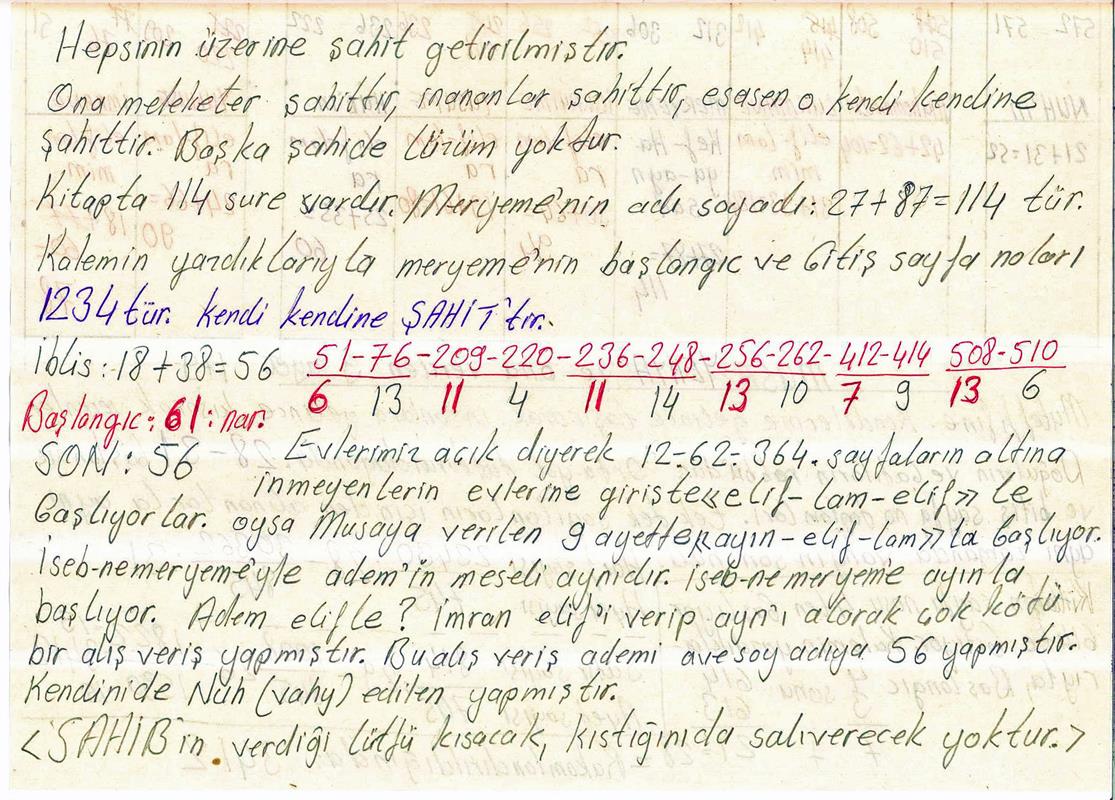 Hepsinin üzerine şahit getirilmiştir.
Ona melekeler şahittir, inananlar şahittir, esasen o kendi kendine
şahittir. Başka şahide lüzüm yoktur.
Kitapta 114 sure vardır. Meryeme'nin adı soyadı: 27+87=114 tür.
Kalemin yazdıklarıyla meryeme'nin başlangıc ve bitiş sayfa noları
1234 tür. kendi kendine ŞAHİT'tır.
İblis: 18+38=56 51-76-209-220-236-248-256-262-412-414 508-510
6 13 11 4 11 14 13 10 7 9 13 6
Başlangıc: 61: nar.
SON: 56 Evlerimiz açık diyerek 12-62-364. sayfaların altına
inmeyenlerin evlerine girişte «elif-lam-elif» le
başlıyorlar. oysa Musaya verilen 9 ayette «ayın-elif-lam» la başlıyor.
İseb-nemeryemé'yle adem'in meseli aynıdır. iseb-nemeryeme ayınla
başlıyor. Adem elifle? İmran elif'i verip ayn'ı alarak çok kötü
bir alış veriş yapmıştır. Bu alış veriş ademi ave soyadıya 56 yapmıştır.
Kendinide Nuh (vahy) edilen yapmıştır.
<SAHİB'in verdiği lütfü kısacak, kıstığınıda salıverecek yoktur.>